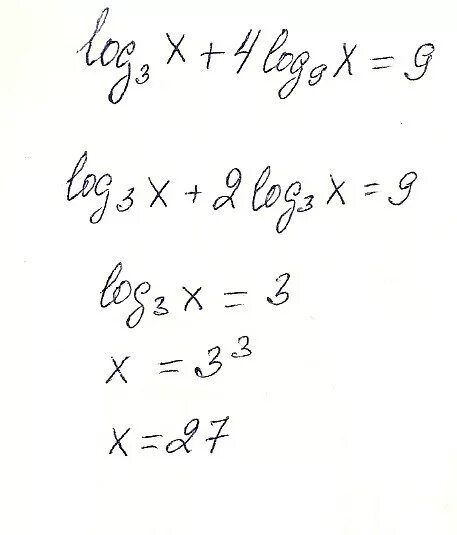 log₃ x + 4 log₉ x = 9
log₃ x + 2 log₃ x = 9
log₃ x = 3
x = 3³
x = 27